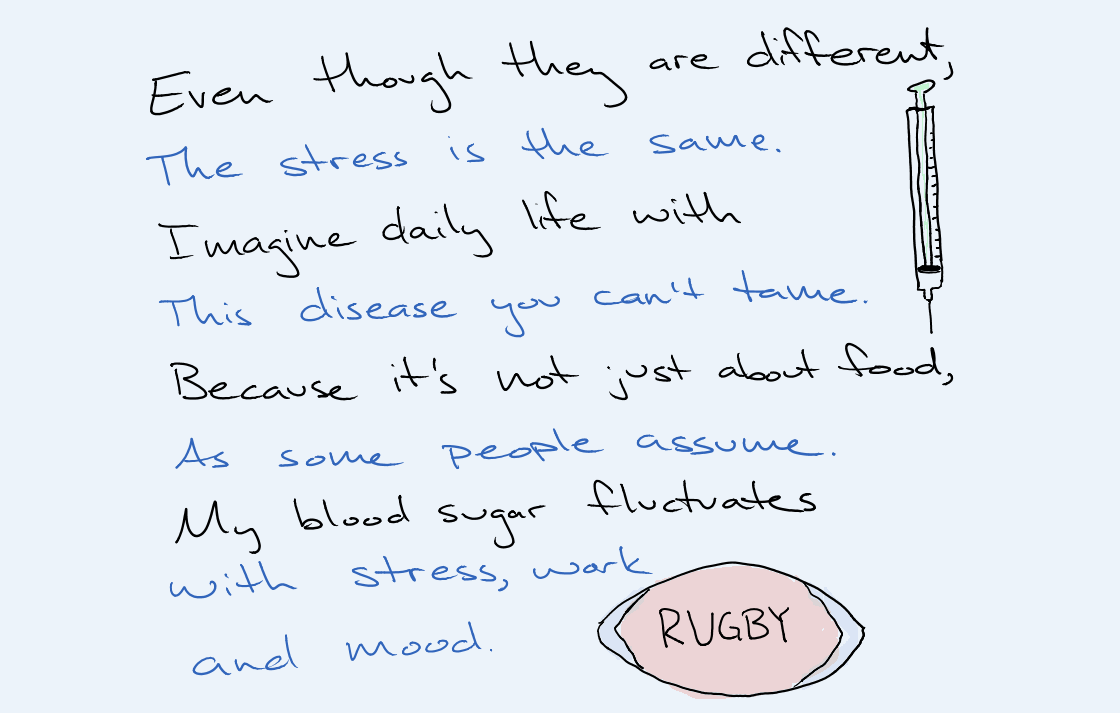 Even though they are different,
The stress is the same.
Imagine daily life with
This disease you can't tame.
Because it's not just about food,
As some people assume.
My blood sugar fluctuates
with stress, work
and mood.
RUGBY